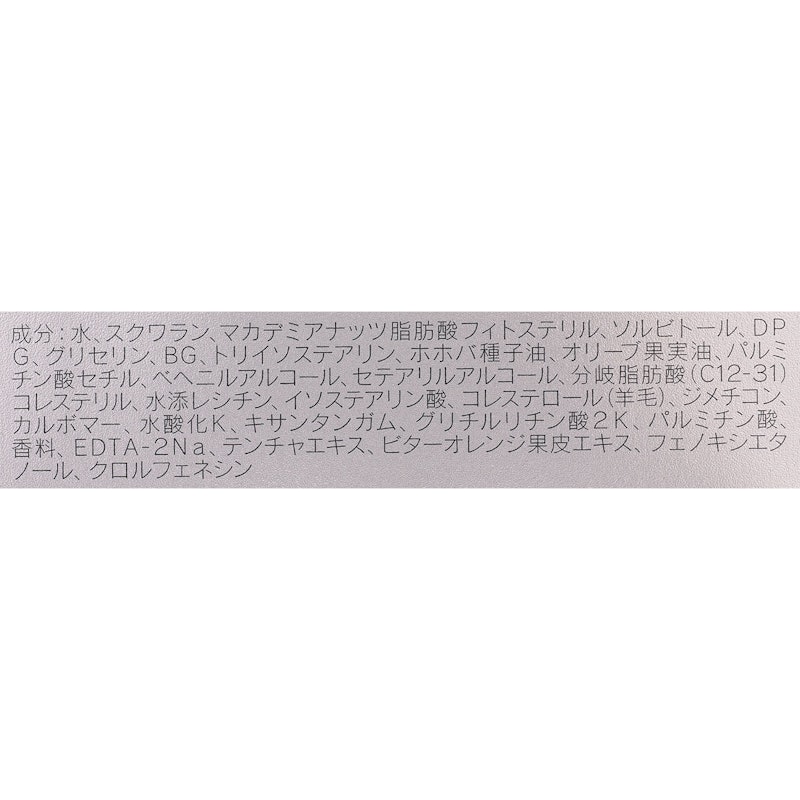 成分：水、スクワラン、マカデミアナッツ脂肪酸フィトステリル、ソルビトール、DP
G、グリセリン、BG、トリイソステアリン、ホホバ種子油、オリーブ果実油、パルミ
チン酸セチル、ベヘニルアルコール、セテアリルアルコール、分岐脂肪酸（C12-31）
コレステリル、水添レシチン、イソステアリン酸、コレステロール（羊毛）、ジメチコン、
カルボマー、水酸化K、キサンタンガム、グリチルリチン酸2K、パルミチン酸、
香料、EDTA-2Na、テンチャエキス、ビターオレンジ果皮エキス、フェノキシエタ
ノール、クロルフェネシン